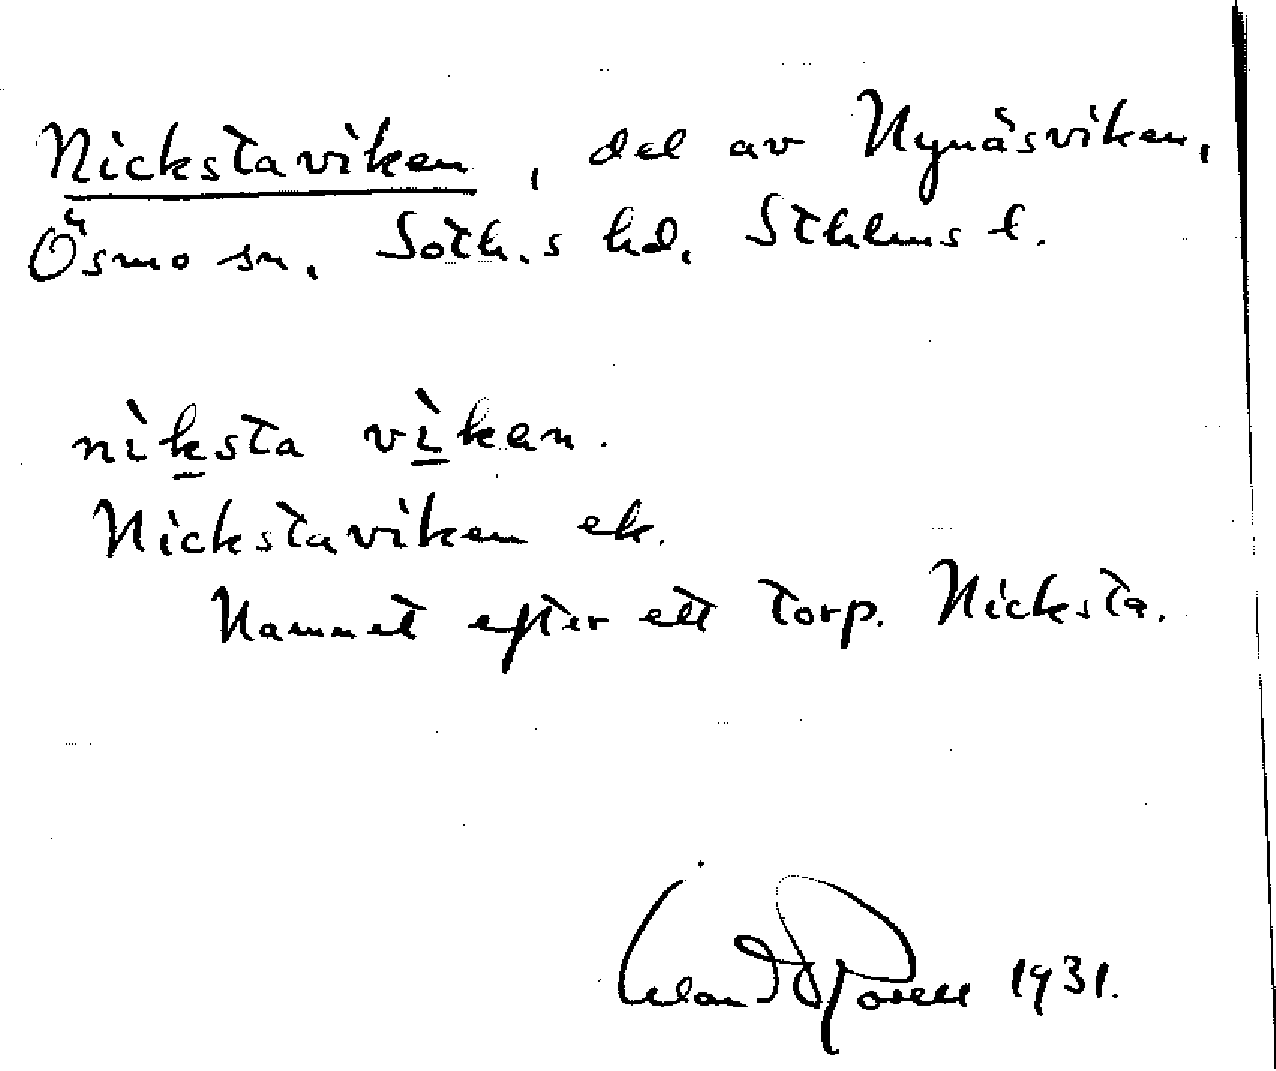 Nickstaviken, del av Nynäsviken,
Ösmo sn. Soth.s hd. Sthlms l.
nìksta vìkən.
Nickstaviken ek.
Namnet efter ett torp. Nicksta.
1931.